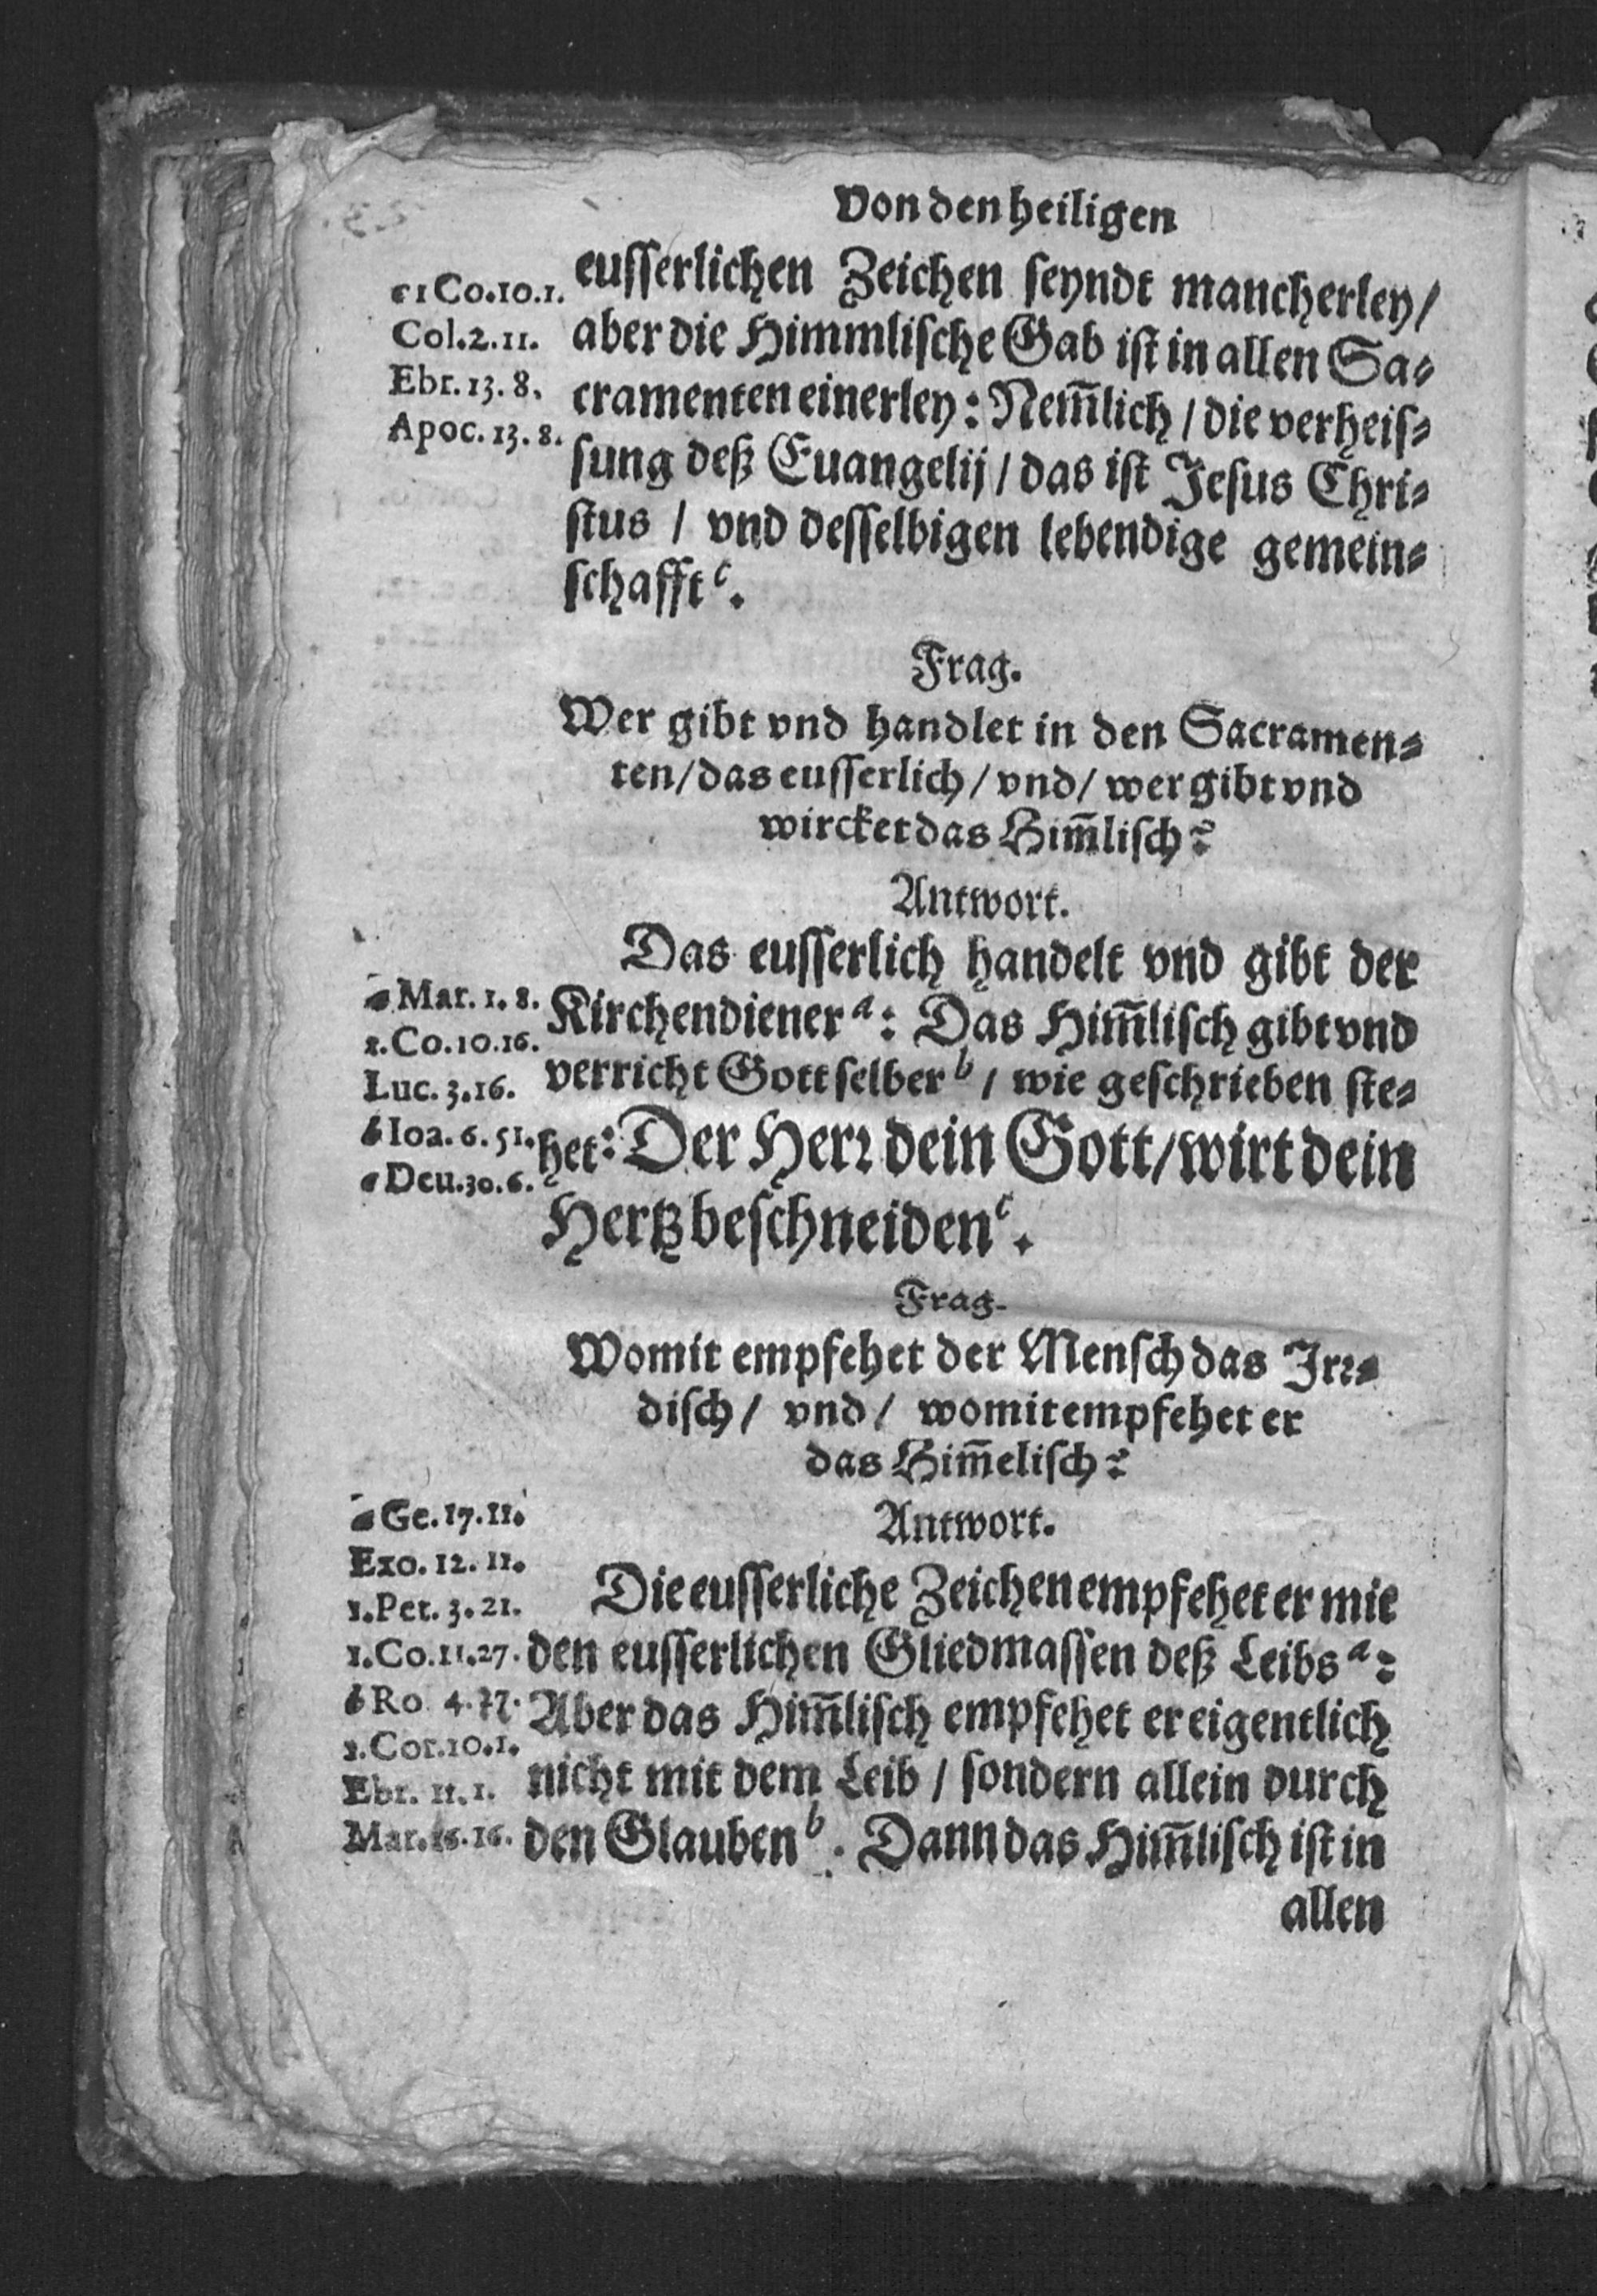 Von den heiligen
c 1 Co.10.1.
Col.2.11.
Ebr.13.8.
Apoc.13.8.
eusserlichen Zeichen seyndt mancherley/
aber die Himmlische Gab ist in allen Sa-
cramenten einerley: Nem̄lich / die verheis-
sung deß Euangelij / das ist Jesus Chri-
stus / vnd desselbigen lebendige gemein-
schafft c.
Frag.
Wer gibt vnd handlet in den Sacramen-
ten/das eusserlich/vnd/ wer gibt vnd
wircket das Him̄lisch?
Antwort.
a Mar.1.8.
1.Co.10.16.
Luc.3.16.
b Ioa.6.51.
c Deu.30.6.
Das eusserlich handelt vnd gibt der
Kirchendiener a: Das Him̄lisch gibt vnd
verricht Gott selber b / wie geschrieben ste-
het: Der Herr dein Gott/wirt dein
Hertz beschneiden c.
Frag.
Womit empfehet der Mensch das Irr-
disch/ vnd/ womit empfehet er
das Him̄elisch?
Antwort.
a Ge.17.11.
Exo.12.11.
1.Pet.3.21.
1.Co.11.27.
b Ro 4.
1.Cor.10.1.
Ebr.11.1.
Mar.16.16.
Die eusserliche Zeichen empfehet er mit
den eusserlichen Gliedmassen deß Leibs a:
Aber das Him̄lisch empfehet er eigentlich
nicht mit dem Leib / sondern allein durch
den Glauben b. Dann das Him̄lisch ist in
allen